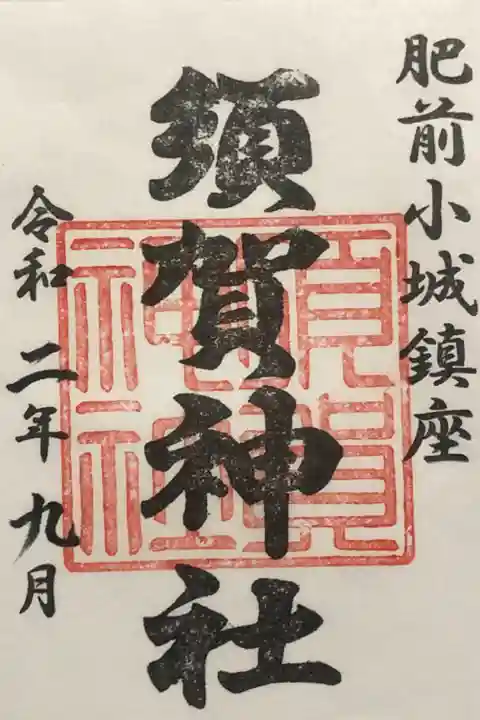 肥前小城鎮座
須賀神社
須賀
神社
令和二年九月